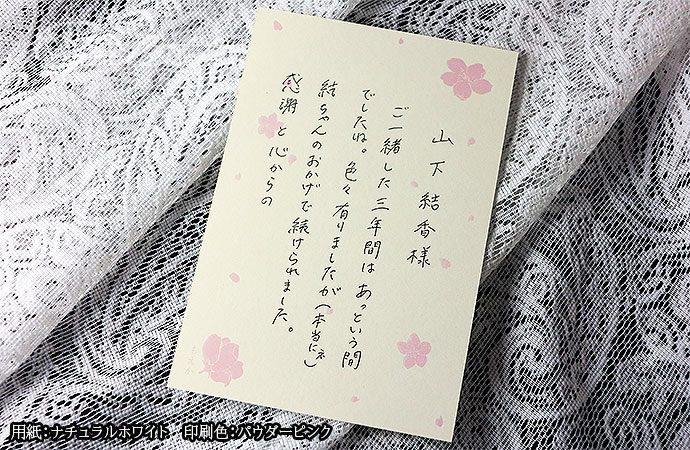 山下結香様
ご一緒した三年間は あっという間
でしたね。色々有りましたが(本当にネ)
結ちゃんのおかげで続けられました。
感謝と心からの
用紙：ナチュラルホワイト　印刷色：パウダーピンク